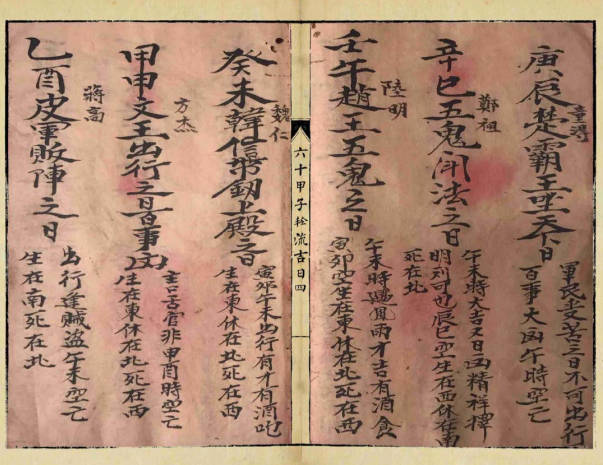 庚辰楚霸王坐天下日
軍民受苦三日不可出行
百事大凶午時空亡
鄭祖
辛巳五鬼鬧法之日
午未時大吉又日凶精祥擇
明列可也辰巳空生在西休在南
死在北
陸明
壬午趙王五鬼之日
午未時遇風雨才吉有酒食
寅卯空生在東休在北死在西
六十甲子輪流吉日四
魏仁
癸未韓信帶釰上殿之日
寅卯午未出行有才有酒吃
生在東休在北死在西
方杰
甲申文王出行之日百事凶
主口舌官非甲酉時空亡
生在東休在北死在西
蔣高
乙酉皮軍敗陣之日
出行逢賊盜午未空亡
生在南死在北